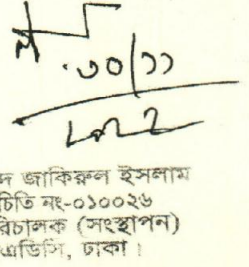 ৩০/১১
দ জাকিরুল ইসলাম
চিতি নং-০১০০২৬
রিচালক (সংস্থাপন)
এডিসি, ঢাকা।